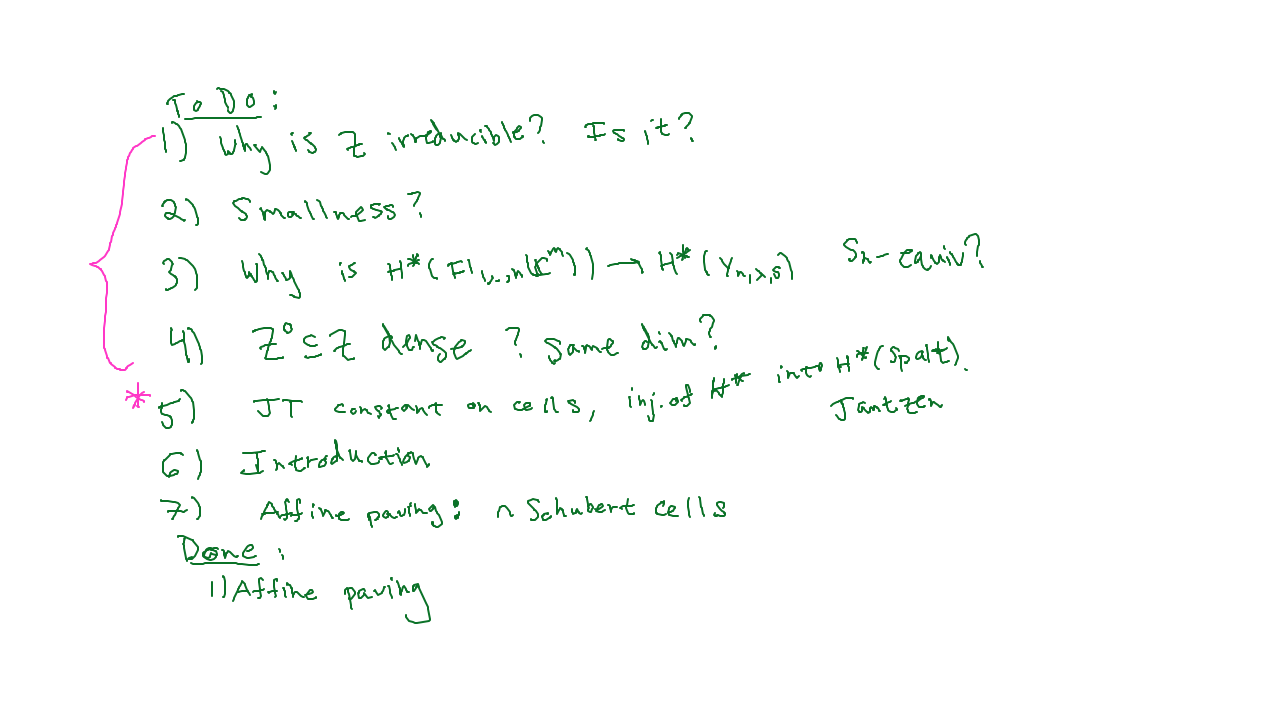 To Do:
1) Why is Z irreducible? Is it?
2) Smallness?
3) Why is H*(Fl₁,..,n(ℂᵐ)) → H*(Yn,λ,s) Sn-equiv?
4) Z° ⊆ Z dense? Same dim?
* 5) JT constant on cells, inj. of H* into H*(Spalt).
Jantzen
6) Introduction
7) Affine paving: ∩ Schubert cells
Done:
1) Affine paving